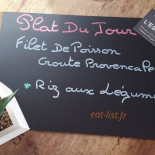 Plat Du Jour
Filet De Poisson
Croute Provencale
* Riz aux Légumes
eat-list.fr